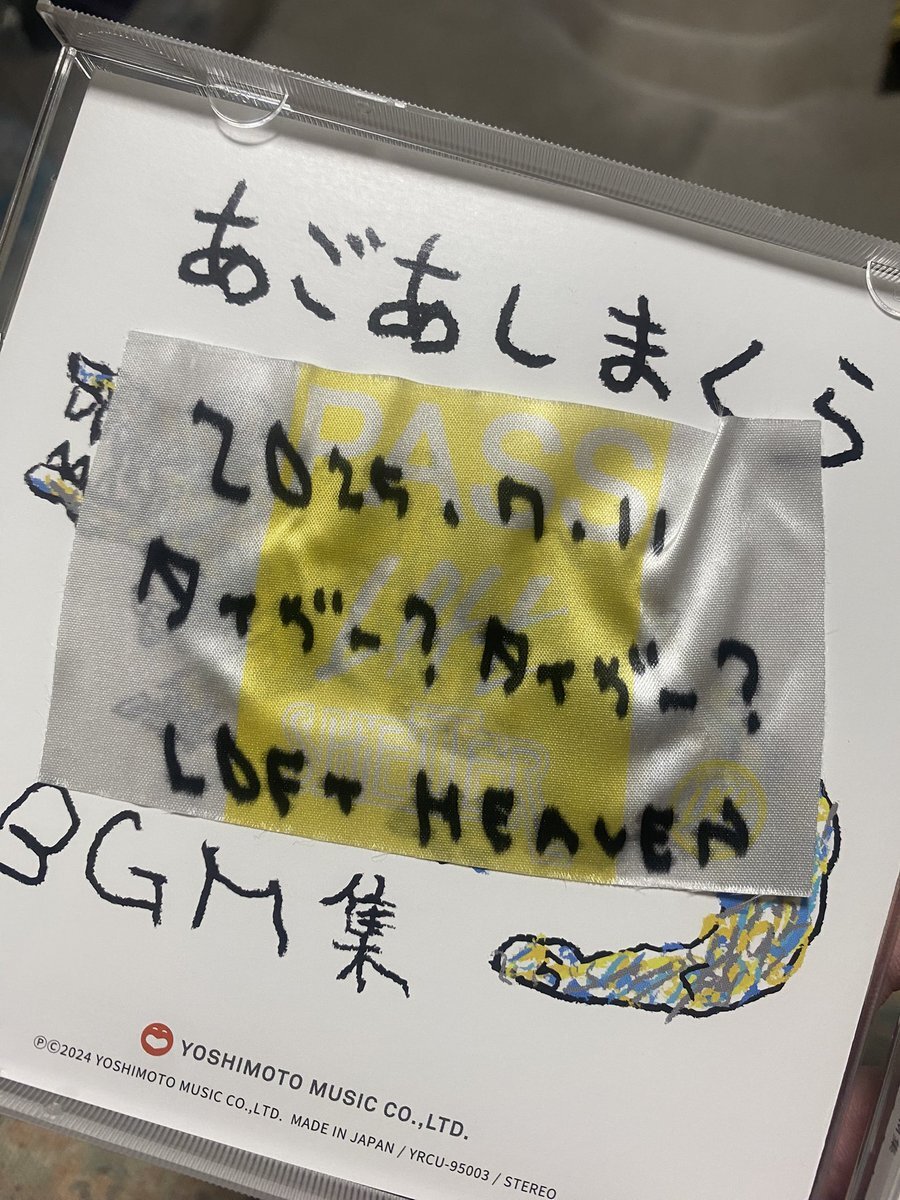 あごあしまくら
PASS
2025.7.11
タイガー?タイガー?
SHELTER
LOFT HEAVEN
BGM集
YOSHIMOTO MUSIC CO.,LTD.
Ⓟ©2024 YOSHIMOTO MUSIC CO.,LTD. MADE IN JAPAN / YRCU-95003 / STEREO